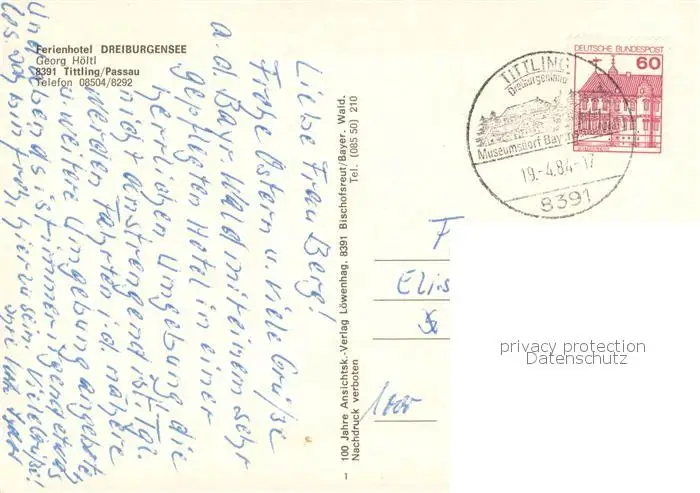 Ferienhotel DREIBURGENSEE
Georg Höltl
8391 Tittling/Passau
Telefon 08504/8292
Liebe Frau Berg!
Frohe Ostern u. viele Grüße
a. d. Bayr. Wald mit einem sehr
gepflegten Hotel in einer
herrlichen Umgebung die
nicht anstrengend ist. Tgl.
werden Fahrten i. d. nähere
u. weitere Umgebung angeboten,
und abends ist immer irgend etwas
los. Ich bin froh, hier zu sein. Viele Grüße!
100 Jahre Ansichtsk.-Verlag Löwenhag. 8391 Bischofsreut/Bayer. Wald.
Nachdruck verboten
Tel. (085 50) 210
1
DEUTSCHE BUNDESPOST
60
TITTLING
Dreiburgenland
Museumsdorf Bay
19.-4.84-17
8391
F
Elis
1000
privacy protection
Datenschutz